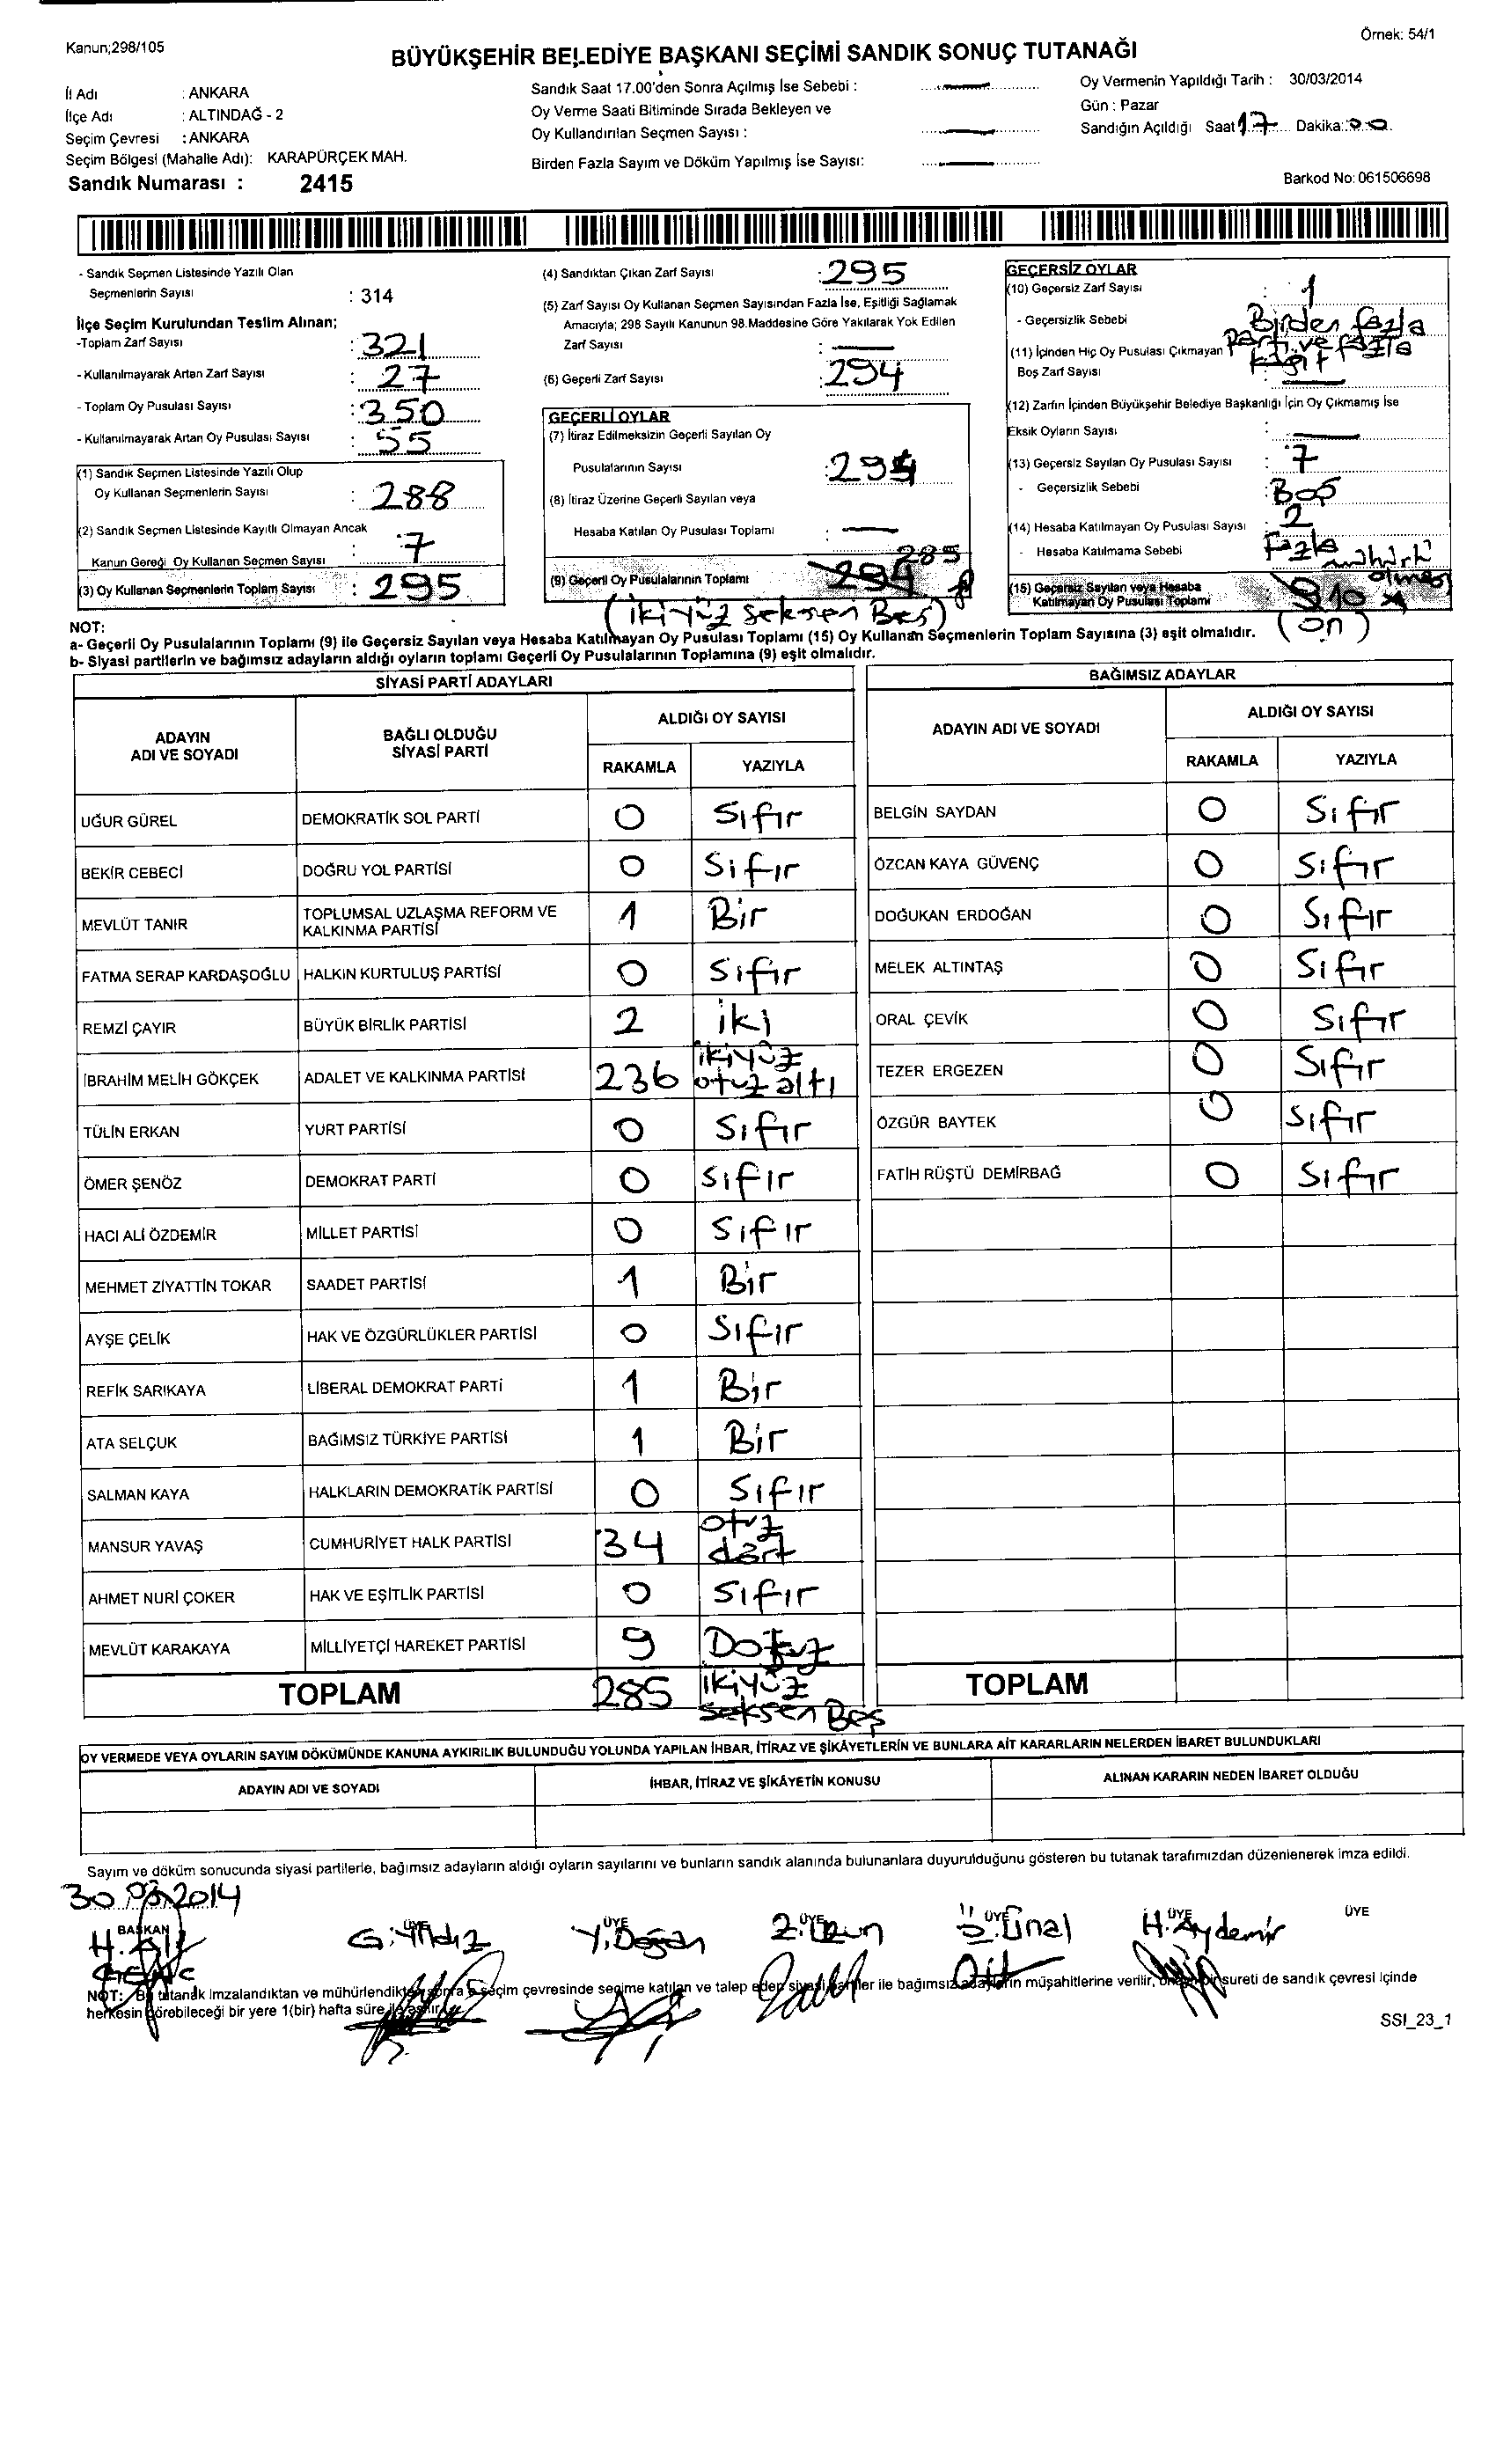 Kanun;298/105
Örnek: 54/1
BÜYÜKŞEHİR BELEDİYE BAŞKANI SEÇİMİ SANDIK SONUÇ TUTANAĞI
İl Adı : ANKARA
İlçe Adı : ALTINDAĞ - 2
Seçim Çevresi : ANKARA
Seçim Bölgesi (Mahalle Adı): KARAPÜRÇEK MAH.
Sandık Numarası : 2415
Sandık Saat 17.00'den Sonra Açılmış İse Sebebi :
Oy Verme Saati Bitiminde Sırada Bekleyen ve
Oy Kullandırılan Seçmen Sayısı :
Birden Fazla Sayım ve Döküm Yapılmış İse Sayısı:
Oy Vermenin Yapıldığı Tarih : 30/03/2014
Gün : Pazar
Sandığın Açıldığı Saat 17 Dakika: 00
Barkod No: 061506698
- Sandık Seçmen Listesinde Yazılı Olan
Seçmenlerin Sayısı : 314
İlçe Seçim Kurulundan Teslim Alınan;
-Toplam Zarf Sayısı : 321
- Kullanılmayarak Artan Zarf Sayısı : 27
- Toplam Oy Pusulası Sayısı : 350
- Kullanılmayarak Artan Oy Pusulası Sayısı : 55
(1) Sandık Seçmen Listesinde Yazılı Olup
Oy Kullanan Seçmenlerin Sayısı : 288
(2) Sandık Seçmen Listesinde Kayıtlı Olmayan Ancak
Kanun Gereği Oy Kullanan Seçmen Sayısı : 7
(3) Oy Kullanan Seçmenlerin Toplam Sayısı : 295
(4) Sandıktan Çıkan Zarf Sayısı : 295
(5) Zarf Sayısı Oy Kullanan Seçmen Sayısından Fazla İse, Eşitliği Sağlamak
Amacıyla; 298 Sayılı Kanunun 98.Maddesine Göre Yakılarak Yok Edilen
Zarf Sayısı :
(6) Geçerli Zarf Sayısı : 294
GEÇERLİ OYLAR
(7) İtiraz Edilmeksizin Geçerli Sayılan Oy
Pusulalarının Sayısı :
(8) İtiraz Üzerine Geçerli Sayılan veya
Hesaba Katılan Oy Pusulası Toplamı :
285
(9) Geçerli Oy Pusulalarının Toplamı 294
(İkiyüz Seksen Beş)
GEÇERSİZ OYLAR
(10) Geçersiz Zarf Sayısı : 1
- Geçersizlik Sebebi : Birden fazla
parti ve fazla
kağıt
(11) İçinden Hiç Oy Pusulası Çıkmayan
Boş Zarf Sayısı :
(12) Zarfın İçinden Büyükşehir Belediye Başkanlığı İçin Oy Çıkmamış İse
Eksik Oyların Sayısı :
(13) Geçersiz Sayılan Oy Pusulası Sayısı : 7
- Geçersizlik Sebebi : Boş
(14) Hesaba Katılmayan Oy Pusulası Sayısı : 2
- Hesaba Katılmama Sebebi : Fazla mühürlü
olması
(15) Geçersiz Sayılan veya Hesaba
Katılmayan Oy Pusulası Toplamı 10
(on)
NOT:
a- Geçerli Oy Pusulalarının Toplamı (9) ile Geçersiz Sayılan veya Hesaba Katılmayan Oy Pusulası Toplamı (15) Oy Kullanan Seçmenlerin Toplam Sayısına (3) eşit olmalıdır.
b- Siyasi partilerin ve bağımsız adayların aldığı oyların toplamı Geçerli Oy Pusulalarının Toplamına (9) eşit olmalıdır.
SİYASİ PARTİ ADAYLARI
ADAYIN
ADI VE SOYADI
BAĞLI OLDUĞU
SİYASİ PARTİ
ALDIĞI OY SAYISI
RAKAMLA YAZIYLA
UĞUR GÜREL DEMOKRATİK SOL PARTİ 0 Sıfır
BEKİR CEBECİ DOĞRU YOL PARTİSİ 0 Sıfır
MEVLÜT TANIR TOPLUMSAL UZLAŞMA REFORM VE
KALKINMA PARTİSİ 1 Bir
FATMA SERAP KARDAŞOĞLU HALKIN KURTULUŞ PARTİSİ 0 Sıfır
REMZİ ÇAYIR BÜYÜK BİRLİK PARTİSİ 2 iki
İBRAHİM MELİH GÖKÇEK ADALET VE KALKINMA PARTİSİ 236 ikiyüz
otuz altı
TÜLİN ERKAN YURT PARTİSİ 0 Sıfır
ÖMER ŞENÖZ DEMOKRAT PARTİ 0 Sıfır
HACI ALİ ÖZDEMİR MİLLET PARTİSİ 0 Sıfır
MEHMET ZİYATTİN TOKAR SAADET PARTİSİ 1 Bir
AYŞE ÇELİK HAK VE ÖZGÜRLÜKLER PARTİSİ 0 Sıfır
REFİK SARIKAYA LİBERAL DEMOKRAT PARTİ 1 Bir
ATA SELÇUK BAĞIMSIZ TÜRKİYE PARTİSİ 1 Bir
SALMAN KAYA HALKLARIN DEMOKRATİK PARTİSİ 0 Sıfır
MANSUR YAVAŞ CUMHURİYET HALK PARTİSİ 34 otuz
dört
AHMET NURİ ÇOKER HAK VE EŞİTLİK PARTİSİ 0 Sıfır
MEVLÜT KARAKAYA MİLLİYETÇİ HAREKET PARTİSİ 9 Dokuz
TOPLAM 285 ikiyüz
seksen Beş
BAĞIMSIZ ADAYLAR
ADAYIN ADI VE SOYADI
ALDIĞI OY SAYISI
RAKAMLA YAZIYLA
BELGİN SAYDAN 0 Sıfır
ÖZCAN KAYA GÜVENÇ 0 Sıfır
DOĞUKAN ERDOĞAN 0 Sıfır
MELEK ALTINTAŞ 0 Sıfır
ORAL ÇEVİK 0 Sıfır
TEZER ERGEZEN 0 Sıfır
ÖZGÜR BAYTEK 0 Sıfır
FATİH RÜŞTÜ DEMİRBAĞ 0 Sıfır
TOPLAM
OY VERMEDE VEYA OYLARIN SAYIM DÖKÜMÜNDE KANUNA AYKIRILIK BULUNDUĞU YOLUNDA YAPILAN İHBAR, İTİRAZ VE ŞİKÂYETLERİN VE BUNLARA AİT KARARLARIN NELERDEN İBARET BULUNDUKLARI
ADAYIN ADI VE SOYADI İHBAR, İTİRAZ VE ŞİKÂYETİN KONUSU ALINAN KARARIN NEDEN İBARET OLDUĞU
Sayım ve döküm sonucunda siyasi partilerle, bağımsız adayların aldığı oyların sayılarını ve bunların sandık alanında bulunanlara duyurulduğunu gösteren bu tutanak tarafımızdan düzenlenerek imza edildi.
30.03.2014
BAŞKAN ÜYE ÜYE ÜYE ÜYE ÜYE ÜYE
G. Yıldız Y. Doğan Z. Uzun Ü. Ünal H. Aydemir
NOT: Bu tutanak imzalandıktan ve mühürlendikten sonra o seçim çevresinde seçime katılan ve talep eden siyasi partiler ile bağımsız adayların müşahitlerine verilir, onaylı bir sureti de sandık çevresi içinde
herkesin görebileceği bir yere 1(bir) hafta süre ile asılır.
SSI_23_1